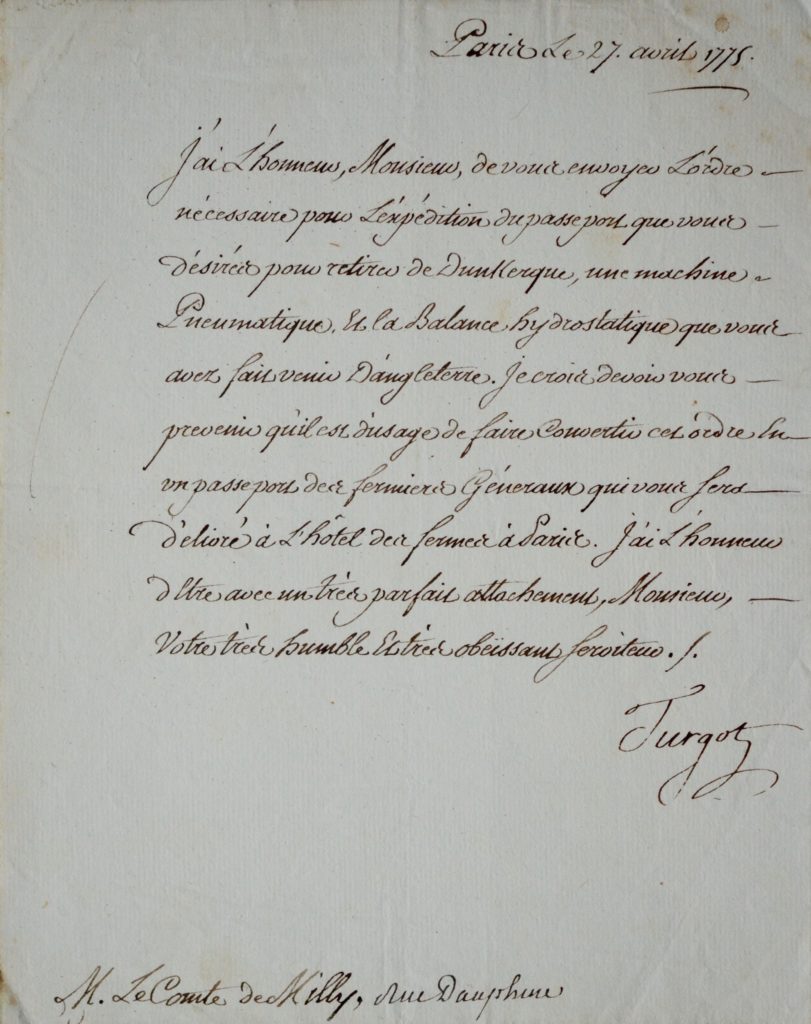 Paris Le 27. avril 1775.
J'ai L'honneur, Monsieur, de vous envoyer L'ordre
nécessaire pour L'expédition du passeport que vous
désirés pour retirer de Dunkerque, une machine
Pneumatique, Et la Balance hydrostatique que vous
avez fait venir D'angleterre. Je crois devoir vous
prevenir qu'il est d'usage de faire Convertir cet ordre En
un passeport des fermiers Géneraux qui vous sera
délivré à L'hôtel des fermes à Paris. J'ai L'honneur
d'Etre avec un très parfait attachement, Monsieur,
Votre très humble Et très obéissant serviteur. /.
Turgot
M. Le Comte de Milly, Rue Dauphine